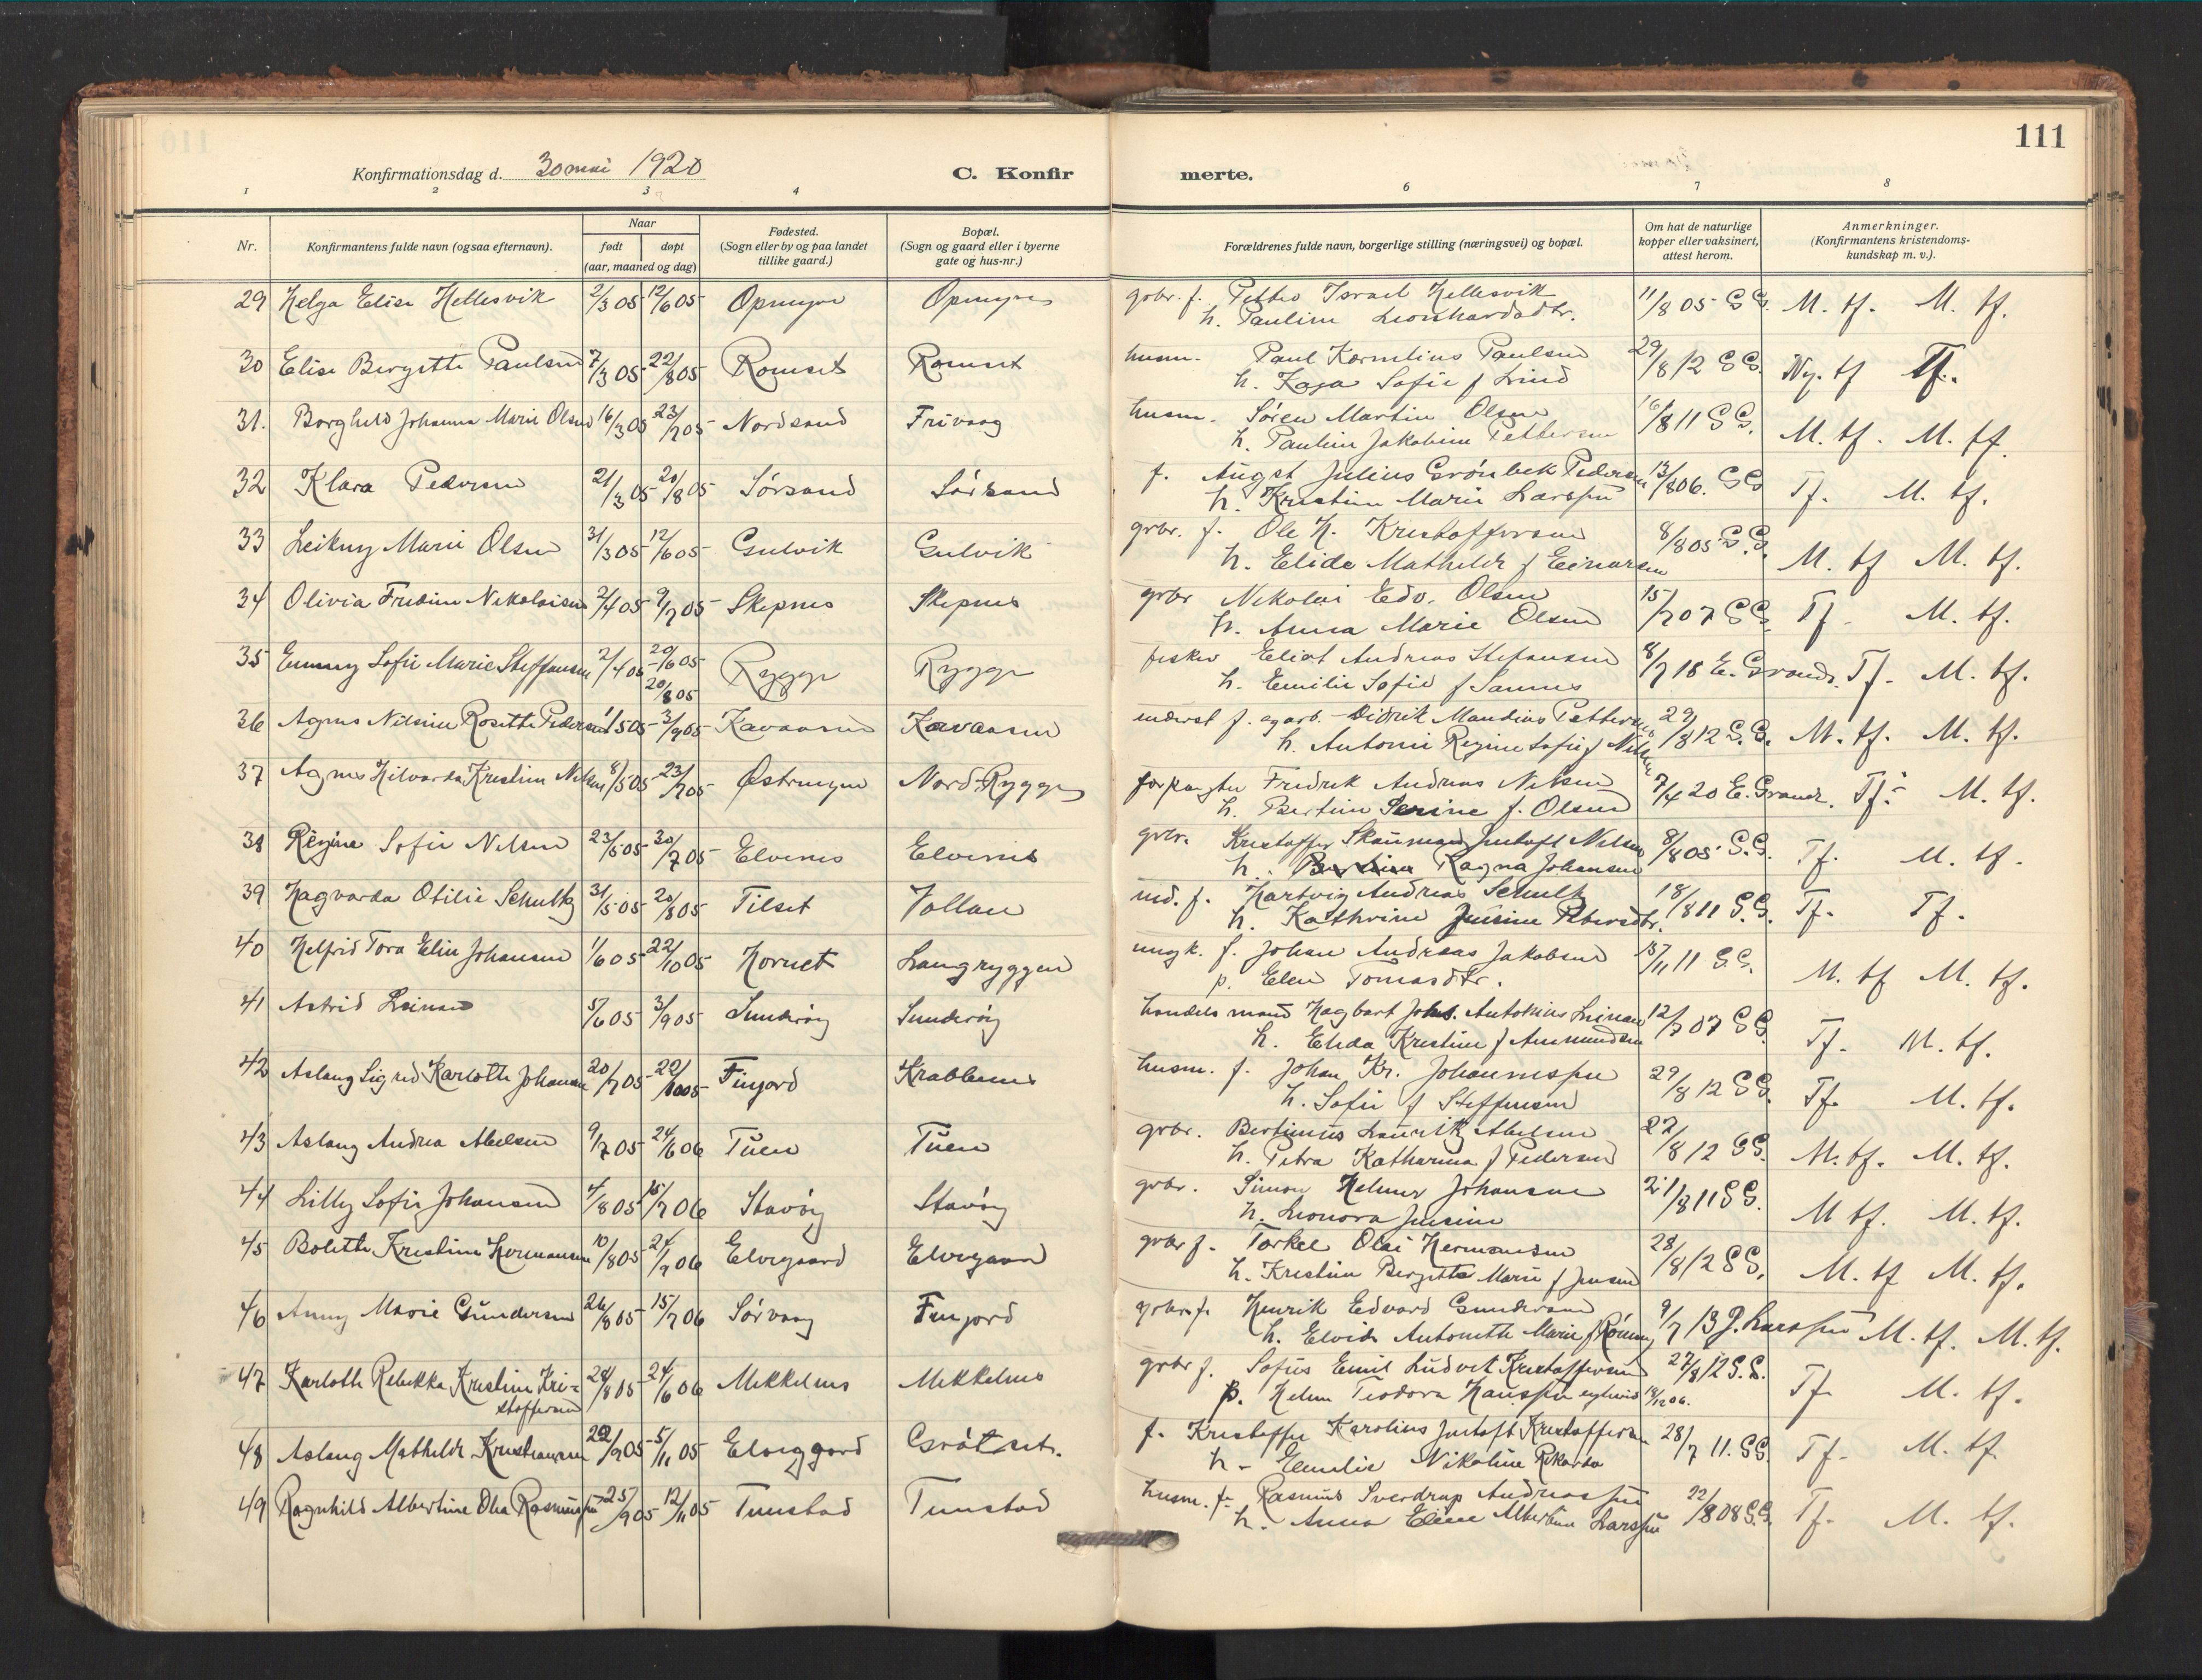 111
Konfirmationsdag d. 30 mai 1920
C. Konfirmerte.
1 2 3 4 6 7 8
Nr. Konfirmantens fulde navn (ogsaa efternavn). Naar født døpt (aar, maaned og dag) Fødested. (Sogn eller by og paa landet tillike gaard.) Bopæl. (Sogn og gaard eller i byerne gate og hus-nr.) Forældrenes fulde navn, borgerlige stilling (næringsvei) og bopæl. Om hat de naturlige kopper eller vaksinert, attest herom. Anmerkninger. (Konfirmantens kristendomskundskap m. v.).
29 Helga Elise Hellesvik 2/3 05 12/6 05 Opmyre Opmyre grbr. f. Petter Israel Hellesvik 11/8 05 GG. M. tf. M. tf.
h. Pauline Leonhardsdtr.
30 Elise Bergitte Paulsen 7/3 05 22/8 05 Romset Romset husm. Paul Kornelius Paulsen 29/8 12 GG. Ng. tf Tf.
h. Kaja Sofie f Lind
31. Borghild Johanna Marie Olsen 16/3 05 23/7 05 Nordsand Frivaag husm. Søren Martin Olsen 16/8 11 GG. M. tf. M. tf.
h. Pauline Jakobine Pettersen
32 Klara Pedersen 21/3 05 20/8 05 Sørsand Sørsand f. August Julius Grönbek Pedersen 13/8 06. GG Tf. M. tf.
h. Kristine Marie Larssen
33 Leikny Marie Olsen 31/3 05 12/6 05 Gulvik Gulvik grbr. f. Ole H. Kristoffersen 8/8 05 G.G. M. tf M. tf.
h. Elida Mathilde f Einarsen
34 Olivia Fredine Nikolaisen 2/4 05 9/7 05 Skepnes Skepnes grbr Nikolai Edv. Olsen 15/7 07 GG. Tf. M. tf.
h. Anna Marie Olsen
35 Emmy Sofie Marie Steffensen 2/4 05 20/6 05 Rygge Rygge fisker Eliot Andreas Stefansen 8/7 18 E. Grandr. Tf. M. tf.
20/8 05 h. Emilie Sofie f Sannes
36 Agnes Nilsine Rosette Pedersen 1/5 05 3/9 05 Kavaasen Kavaasen inderst f. og arb. Didrik Mandius Pettersen 29/8 12 G.G. M. tf. M. tf.
h. Antonie Regine Sofie f Nilsen
37 Agnes Hilvarda Kristine Nilsen 8/5 05 23/7 05 Østremyre Nord-Rygge forpagter Fredrik Andreas Nilsen 7/4 20 E. Grandr. Tf. M. tf.
h. Bertine Serine f. Olsen
38 Regine Sofie Nilsen 23/5 05 30/7 05 Elvenes Elvenes grbr. Kristoffer Justoft Nilsen 8/8 05 G.G. Tf. M. tf.
h. Ragna Johansen
39 Hagvarda Otilie Schultz 31/5 05 20/8 05 Tilset Vollan ind. f. Hartvig Andreas Schultz 18/8 11 G.G. Tf. Tf.
h. Kathrine Jensine Petersdtr.
40 Helfrid Tora Elin Johansen 1/6 05 22/10 05 Hornet Langryggen ungk. f. Johan Andreas Jakobsen 15/11 11 GG. M. tf M. tf.
p. Elen Tomasdtr.
41 Astrid Leinan 5/6 05 3/9 05 Sunderöy Sunderöy handelsmand Hagbart Johs. Antonius Leinan 12/7 07 GG. Tf. M. tf.
h. Elida Kristine f Aasmundsen
42 Aslaug Sigrid Karlotte Johansen 20/7 05 22/10 05 Finjord Krabbenes husm. f. Johan Kr. Johannessen 29/8 12 GG. Tf. M. tf.
h. Sofie f Steffensen
43 Aslaug Andrea Abelsen 9/7 05 24/6 06 Tuen Tuen grbr. Bertinus Lauritz Abelsen 27/8 12 GG. M. tf. M. tf.
h. Petra Katharina f Pedersen
44 Lilly Sofie Johansen 4/8 05 15/7 06 Stavöy Stavöy grbr. Simon Helmer Johansen 21/8 11 GG. M tf. M. tf.
h. Leonora Jensine
45 Bolette Kristine Hermansen 10/8 05 Elvegaard Elvegaard grbr f. Torkel Olai Hermansen 28/8 12 GG. M. tf M. tf.
h. Kristine Bergitte Marie f Jensen
46 Anny Marie Gundersen 26/8 05 15/7 06 Sørvaag Finjord grbr. f. Henrik Edvard Gundersen 9/7 13 J. Larssen M. tf. M. tf.
h. Elvide Antonette Marie f Rönning
47 Karlotte Rebekka Kristine Kristoffersen 28/8 05 24/6 06 Mikkelnes Mikkelnes grbr f. Sofus Emil Ludvik Kristoffersen 27/8 12 G.G. Tf. M. tf.
p. Helen Teodora Hanssen 12 06.
48 Aslaug Mathilde Kristiansen 22/9 05 5/11 05 Elveggard Grötset. f. Kristoffer Karolius Justoft Kristoffersen 28/7 11. GG. Tf. M. tf.
h. Emelie Nikoline Rikarda
49 Ragnhild Albertine Olea Rasmussen 25/9 05 12/11 05 Tunstad Tunstad husm. f. Rasmus Sverdrup Andreassen 22/8 08 GG. Tf. M. tf.
h. Anna Eline Albertine Larssen